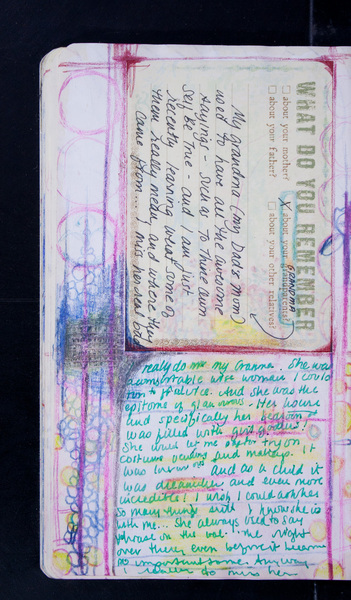 WHAT DO YOU REMEMBER
about your mother?
about your father?
X about your grandparents?
GRANDMA
about your other relatives?
My grandma (my Dad's mom)
used to have all the awesome
sayings - such as To Thine Own
Self Be True - and I am just
recently learning what some of
them really mean and where they
came from... I miss her
really do miss my Gramma. She was
wise woman I could
run to for advice. And she was the
epitome of glamorous. Her house
and specifically her
was filled with goodies!
She would let me try on
costume and makeup. It
was and as a child it
was and even more
incredible! I wish I could ask her
so many things still I know she is
with me... She always used to say
phrase on the the night
over there, even before it became
so important some. Anyway
I do miss her